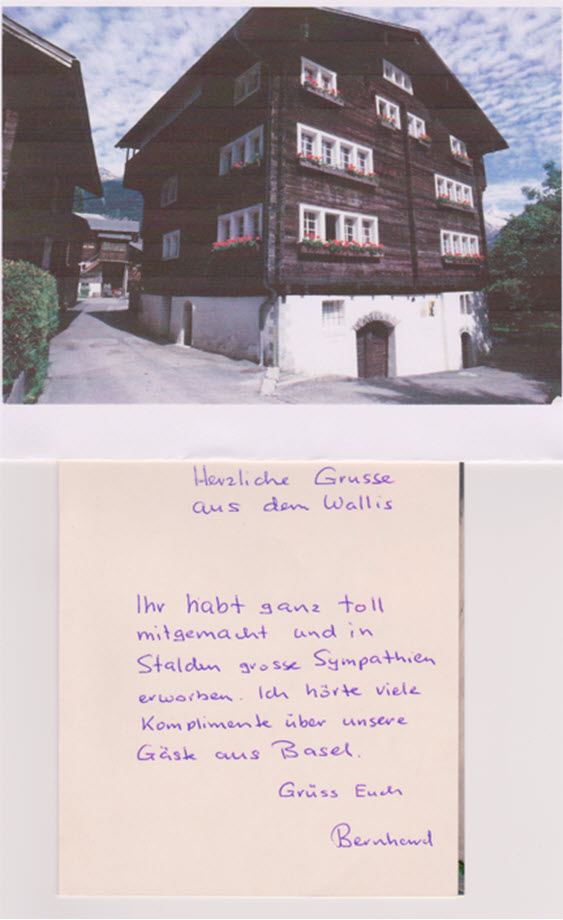 Herzliche Grusse
aus dem Wallis
Ihr habt ganz toll
mitgemacht und in
Stalden grosse Sympathien
erworben. Ich hörte viele
Komplimente über unsere
Gäste aus Basel.
Grüss Euch
Bernhard